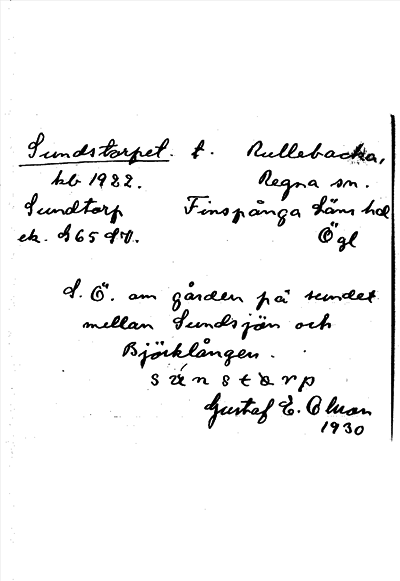 Sundstorpet. t. Rullebacka,
kb 1922. Regna sn.
Sundtorp Finspånga läns hd
ek. S65 SV. Ögl
S. Ö. om gården på sundet
mellan Sundsjön och
Björklången.
súnstàrp
Gustaf E. Olson
1930